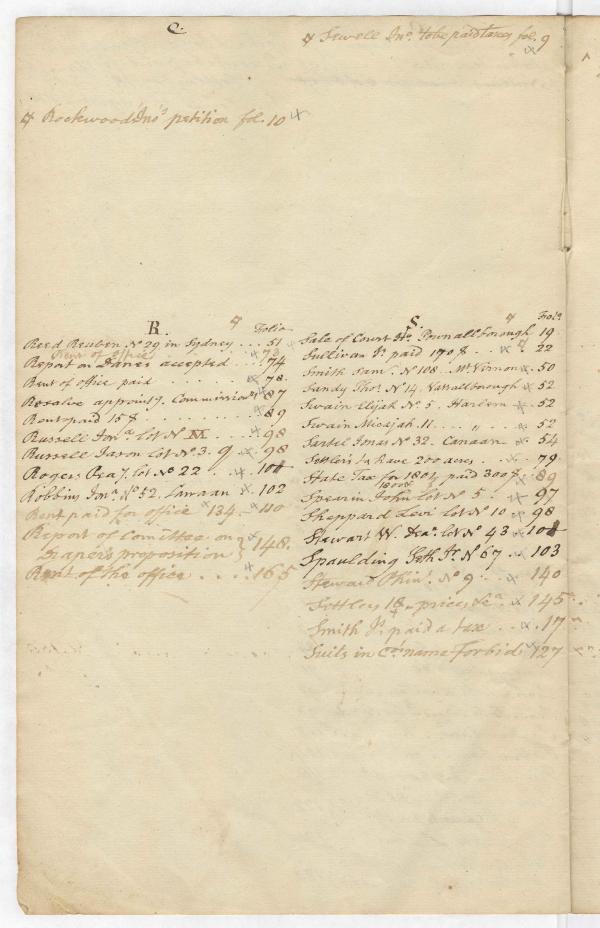 C.
Sewell Jno. to be paid taxes fol. 9
Rockwood Jno's petition fol. 10
R. Folio
Reed Reuben No 29 in Sydney . . . 51
Rent of office 73
Report on Danes accepted . . . 74
Rent of office paid . . . . . 78
Resolve appointg. Commission 87
Rent paid 15 $ . . . . . 89
Russell Jona lot No . . 98
Russell Jason lot No 3. 9 . . 98
Rogers Reay. lot No 22 . . 101
Robbins Jona. No 52. Canaan . 102
Rent paid for office 134. 110
Report of Comittee on
Soper's proposition } 148.
Rent of the office . . . . 165
S. Folo
Sale of Court Ho. Pownallborough 19
Sullivan Js. paid 170 $ . . 22
Smith Sam. No 108. Mt Vernon 50
Sundy Thos. No 14. Vassalborough 52
Swain Elijah No 5. Harlem . 52
Swain Micajah 11. . . . " . . 52
Sartel Jonas No 32. Canaan . 54
Settlers to have 200 acres . . . 79
State Tax for 1804 paid 300 $. 89
Spearin John Lot No 5 . . 97
Sheppard Levi Lot No 10 . 98
Stewart W. Lot No 43 . 101
Spaulding Seth Jr. No 67 . . 103
Steward Phins. No 9 . . . 140
Settlers prices &c. . 145
Smith Js. paid a tax . . . 17
Suits in Co. name Forbid. 127